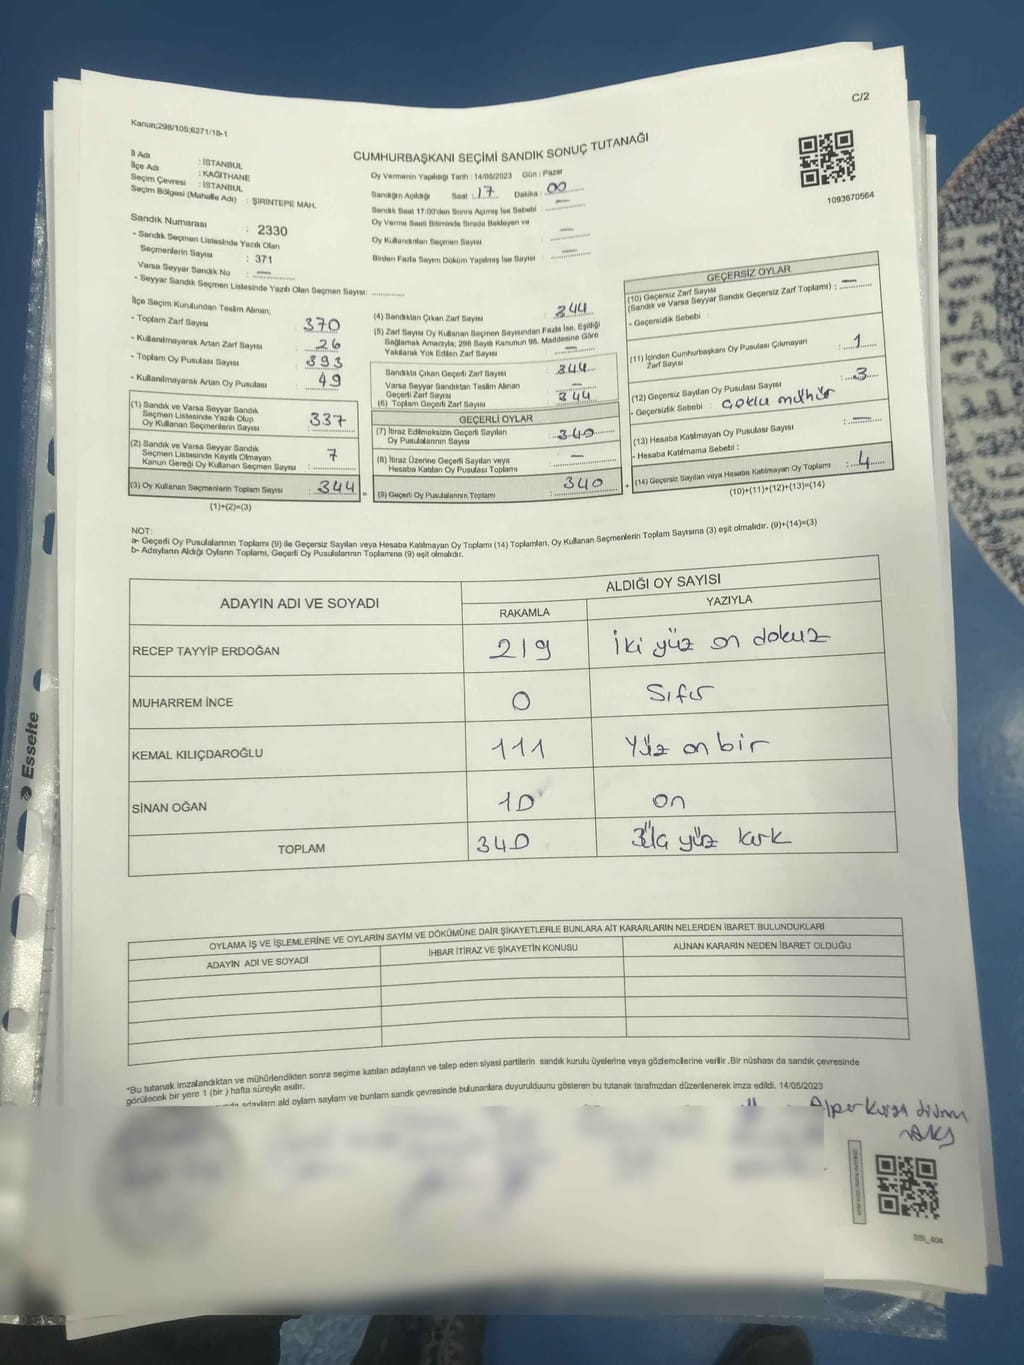 C/2
Kanun;298/105;6271/18-1
CUMHURBAŞKANI SEÇİMİ SANDIK SONUÇ TUTANAĞI
1093670564
İl Adı : İSTANBUL
İlçe Adı : KAĞITHANE
Seçim Çevresi : İSTANBUL
Seçim Bölgesi (Mahalle Adı) : ŞİRİNTEPE MAH.
Sandık Numarası : 2330
- Sandık Seçmen Listesinde Yazılı Olan
Seçmenlerin Sayısı : 371
Varsa Seyyar Sandık No : —
- Seyyar Sandık Seçmen Listesinde Yazılı Olan Seçmen Sayısı:
Oy Vermenin Yapıldığı Tarih : 14/05/2023 Gün : Pazar
Sandığın Açıldığı Saat : 17 Dakika : 00
Sandık Saat 17:00'den Sonra Açılmış İse Sebebi : —
Oy Verme Saati Bitiminde Sırada Bekleyen ve
Oy Kullandırılan Seçmen Sayısı : —
Birden Fazla Sayım Döküm Yapılmış İse Sayısı : —
İlçe Seçim Kurulundan Teslim Alınan;
- Toplam Zarf Sayısı : 370
- Kullanılmayarak Artan Zarf Sayısı : 26
- Toplam Oy Pusulası Sayısı : 393
- Kullanılmayarak Artan Oy Pusulası : 49
(1) Sandık ve Varsa Seyyar Sandık
Seçmen Listesinde Yazılı Olup
Oy Kullanan Seçmenlerin Sayısı : 337
(2) Sandık ve Varsa Seyyar Sandık
Seçmen Listesinde Kayıtlı Olmayan
Kanun Gereği Oy Kullanan Seçmen Sayısı : 7
(3) Oy Kullanan Seçmenlerin Toplam Sayısı : 344
(1)+(2)=(3)
(4) Sandıktan Çıkan Zarf Sayısı : 344
(5) Zarf Sayısı Oy Kullanan Seçmen Sayısından Fazla İse, Eşitliği
Sağlamak Amacıyla; 298 Sayılı Kanunun 98. Maddesine Göre
Yakılarak Yok Edilen Zarf Sayısı : —
Sandıkta Çıkan Geçerli Zarf Sayısı : 344
Varsa Seyyar Sandıktan Teslim Alınan
Geçerli Zarf Sayısı : —
(6) Toplam Geçerli Zarf Sayısı : 344
GEÇERLİ OYLAR
(7) İtiraz Edilmeksizin Geçerli Sayılan
Oy Pusulalarının Sayısı : 340
(8) İtiraz Üzerine Geçerli Sayılan veya
Hesaba Katılan Oy Pusulası Toplamı : —
(9) Geçerli Oy Pusulalarının Toplamı : 340
GEÇERSİZ OYLAR
(10) Geçersiz Zarf Sayısı
(Sandık ve Varsa Seyyar Sandık Geçersiz Zarf Toplamı) : —
- Geçersizlik Sebebi :
(11) İçinden Cumhurbaşkanı Oy Pusulası Çıkmayan
Zarf Sayısı : 1
(12) Geçersiz Sayılan Oy Pusulası Sayısı : 3
- Geçersizlik Sebebi : çoklu mühür
(13) Hesaba Katılmayan Oy Pusulası Sayısı : —
- Hesaba Katılmama Sebebi :
(14) Geçersiz Sayılan veya Hesaba Katılmayan Oy Toplamı : 4
(10)+(11)+(12)+(13)=(14)
NOT:
a- Geçerli Oy Pusulalarının Toplamı (9) ile Geçersiz Sayılan veya Hesaba Katılmayan Oy Toplamı (14) Toplamları, Oy Kullanan Seçmenlerin Toplam Sayısına (3) eşit olmalıdır. (9)+(14)=(3)
b- Adayların Aldığı Oyların Toplamı, Geçerli Oy Pusulalarının Toplamına (9) eşit olmalıdır.
ADAYIN ADI VE SOYADI
ALDIĞI OY SAYISI
RAKAMLA YAZIYLA
RECEP TAYYİP ERDOĞAN 219 İki yüz on dokuz
MUHARREM İNCE 0 Sıfır
KEMAL KILIÇDAROĞLU 111 Yüz on bir
SİNAN OĞAN 10 on
TOPLAM 340 yüz kırk
OYLAMA İŞ VE İŞLEMLERİNE VE OYLARIN SAYIM VE DÖKÜMÜNE DAİR ŞİKAYETLERLE BUNLARA AİT KARARLARIN NELERDEN İBARET BULUNDUKLARI
ADAYIN ADI VE SOYADI İHBAR İTİRAZ VE ŞİKAYETİN KONUSU ALINAN KARARIN NEDEN İBARET OLDUĞU
*Bu tutanak imzalandıktan ve mühürlendikten sonra seçime katılan adayların ve talep eden siyasi partilerin sandık kurulu üyelerine veya gözlemcilerine verilir .Bir nüshası da sandık çevresinde
görülecek bir yere 1 (bir ) hafta süreyle asılır.
adayların ald oyların sayların ve bunların sandk çevresinde bulunanlara duyurulduunu gösteren bu tutanak tarafmzdan düzenlenerek imza edildi. 14/05/2023
SSI_404
Esselte